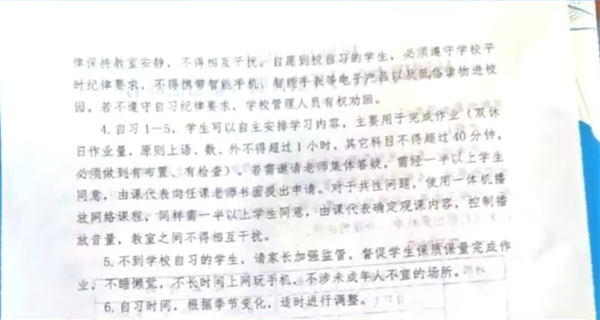 律保持教室安静，不得相互干扰。自愿到校自习的学生，必须遵守学校平
时纪律要求，不得携带智能手机、智能手表等电子产品以及低俗读物进校
园。若不遵守自习纪律要求，学校管理人员有权劝回。
4.自习1—5，学生可以自主安排学习内容，主要用于完成作业（双休
日作业量，原则上语、数、外不得超过1小时，其它科目不得超过40分钟，
必须做到有布置、有检查）。若需邀请老师集体答疑，需经一半以上学生
同意，由课代表向任课老师书面提出申请。对于共性问题，使用一体机播
放网络课程，同样需一半以上学生同意，由课代表确定观课内容，控制播
放音量，教室之间不得相互干扰。
5.不到学校自习的学生，请家长加强监管，督促学生保质保量完成作
业，不睡懒觉，不长时间上网玩手机，不涉未成年人不宜的场所。
6.自习时间，根据季节变化，适时进行调整。